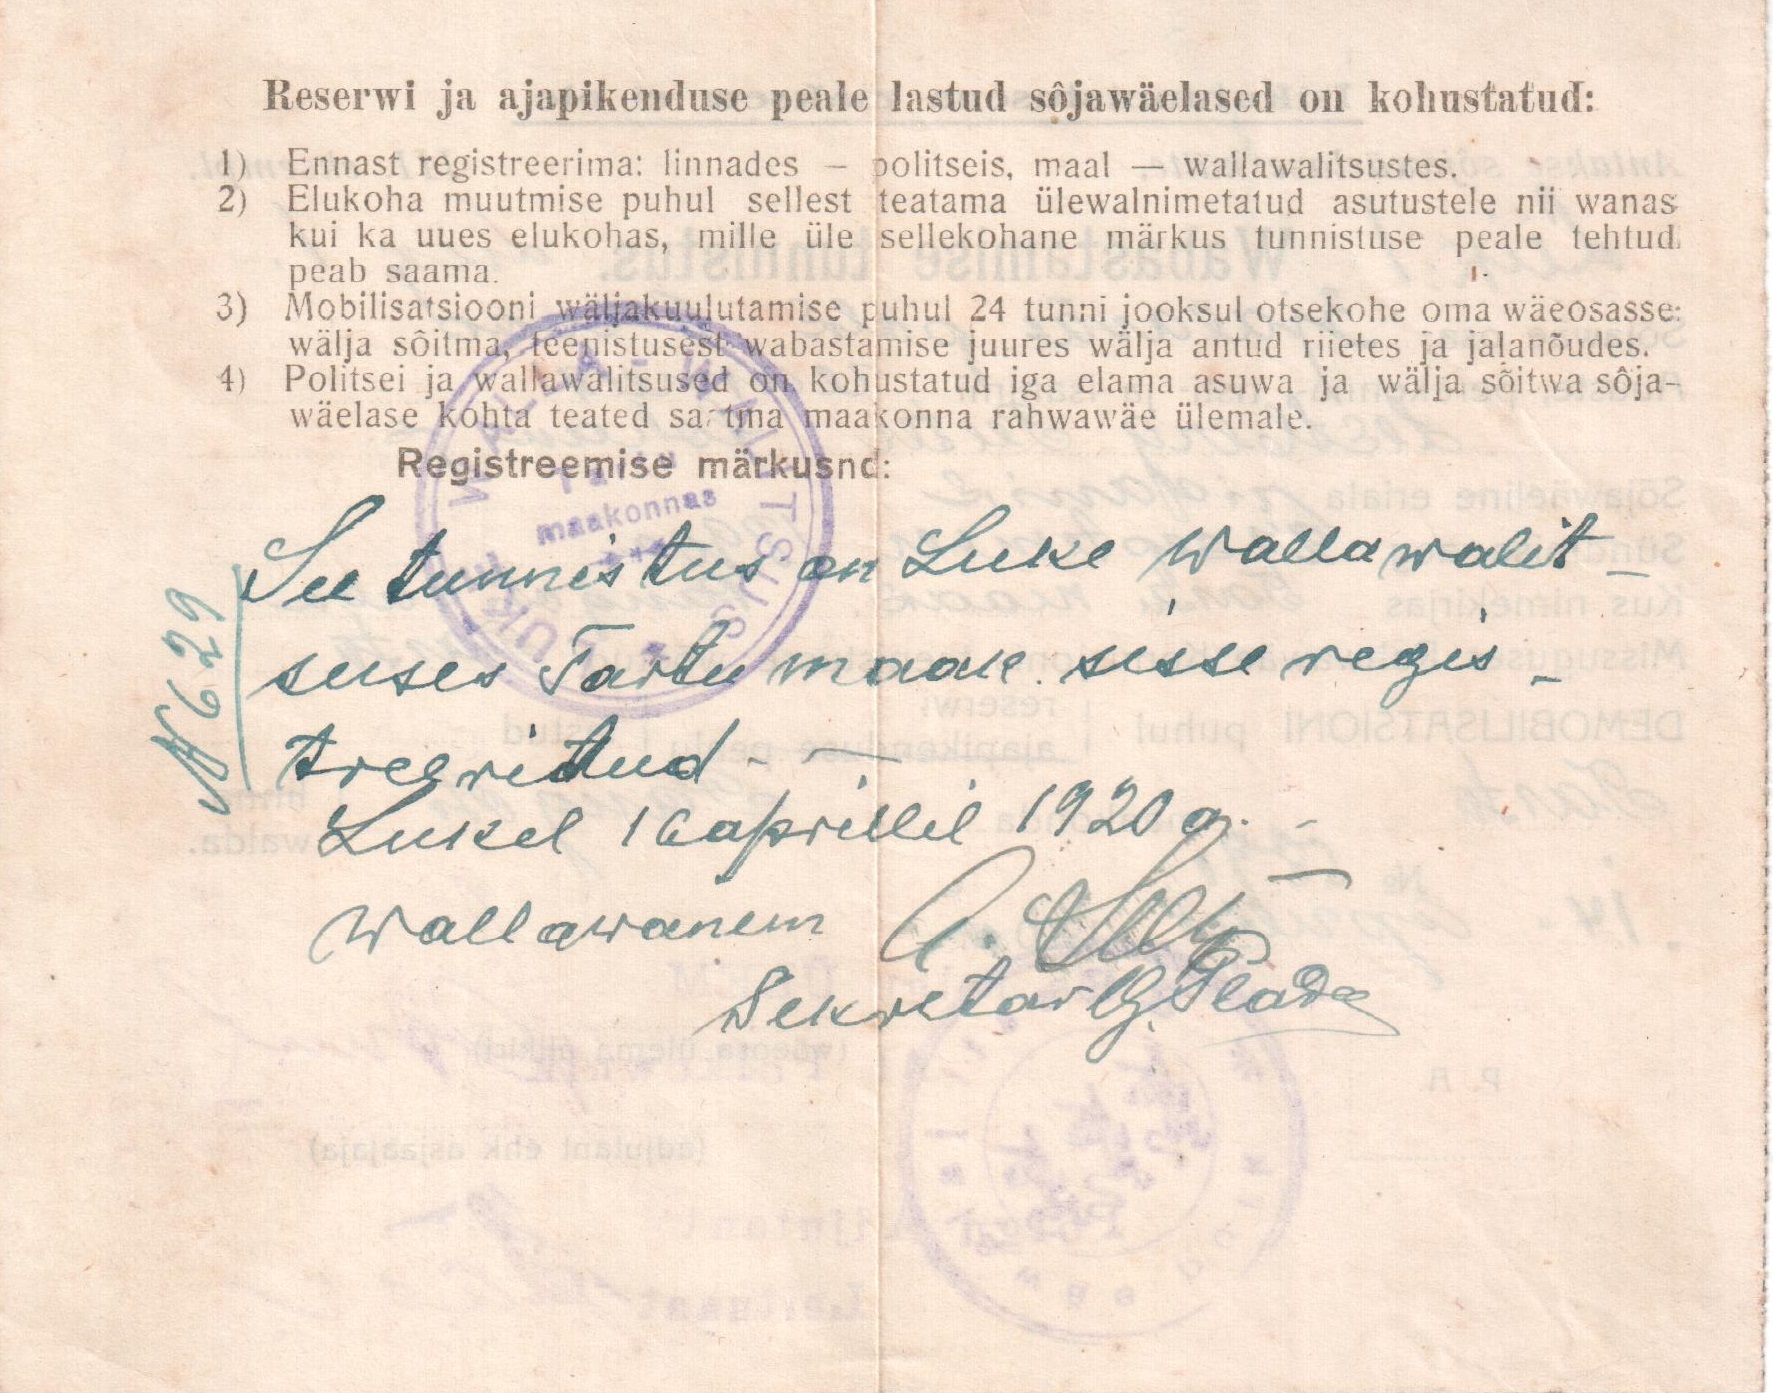 Reserwi ja ajapikenduse peale lastud sôjawäelased on kohustatud:
1) Ennast registreerima: linnades — politseis, maal — wallawalitsustes.
2) Elukoha muutmise puhul sellest teatama ülewalnimetatud asutustele nii wanas
kui ka uues elukohas, mille üle sellekohane märkus tunnistuse peale tehtud
peab saama.
3) Mobilisatsiooni wäljakuulutamise puhul 24 tunni jooksul otsekohe oma wäeosasse
wälja sôitma, teenistusest wabastamise juures wälja antud riietes ja jalanõudes.
4) Politsei ja wallawalitsused on kohustatud iga elama asuwa ja wälja sõitwa sôja-
wäelase kohta teated saatma maakonna rahwawäe ülemale.
Registreemise märkusnd:
WALLA-WALITSUS
maakonnas
LUKE
N 629
See tunnistus on Luke Wallawalit-
suses Tartu maak. sisse regis-
treeritud. —
Lukel 16 aprillil 1920 a. -
Wallawanem A.
Sekretar